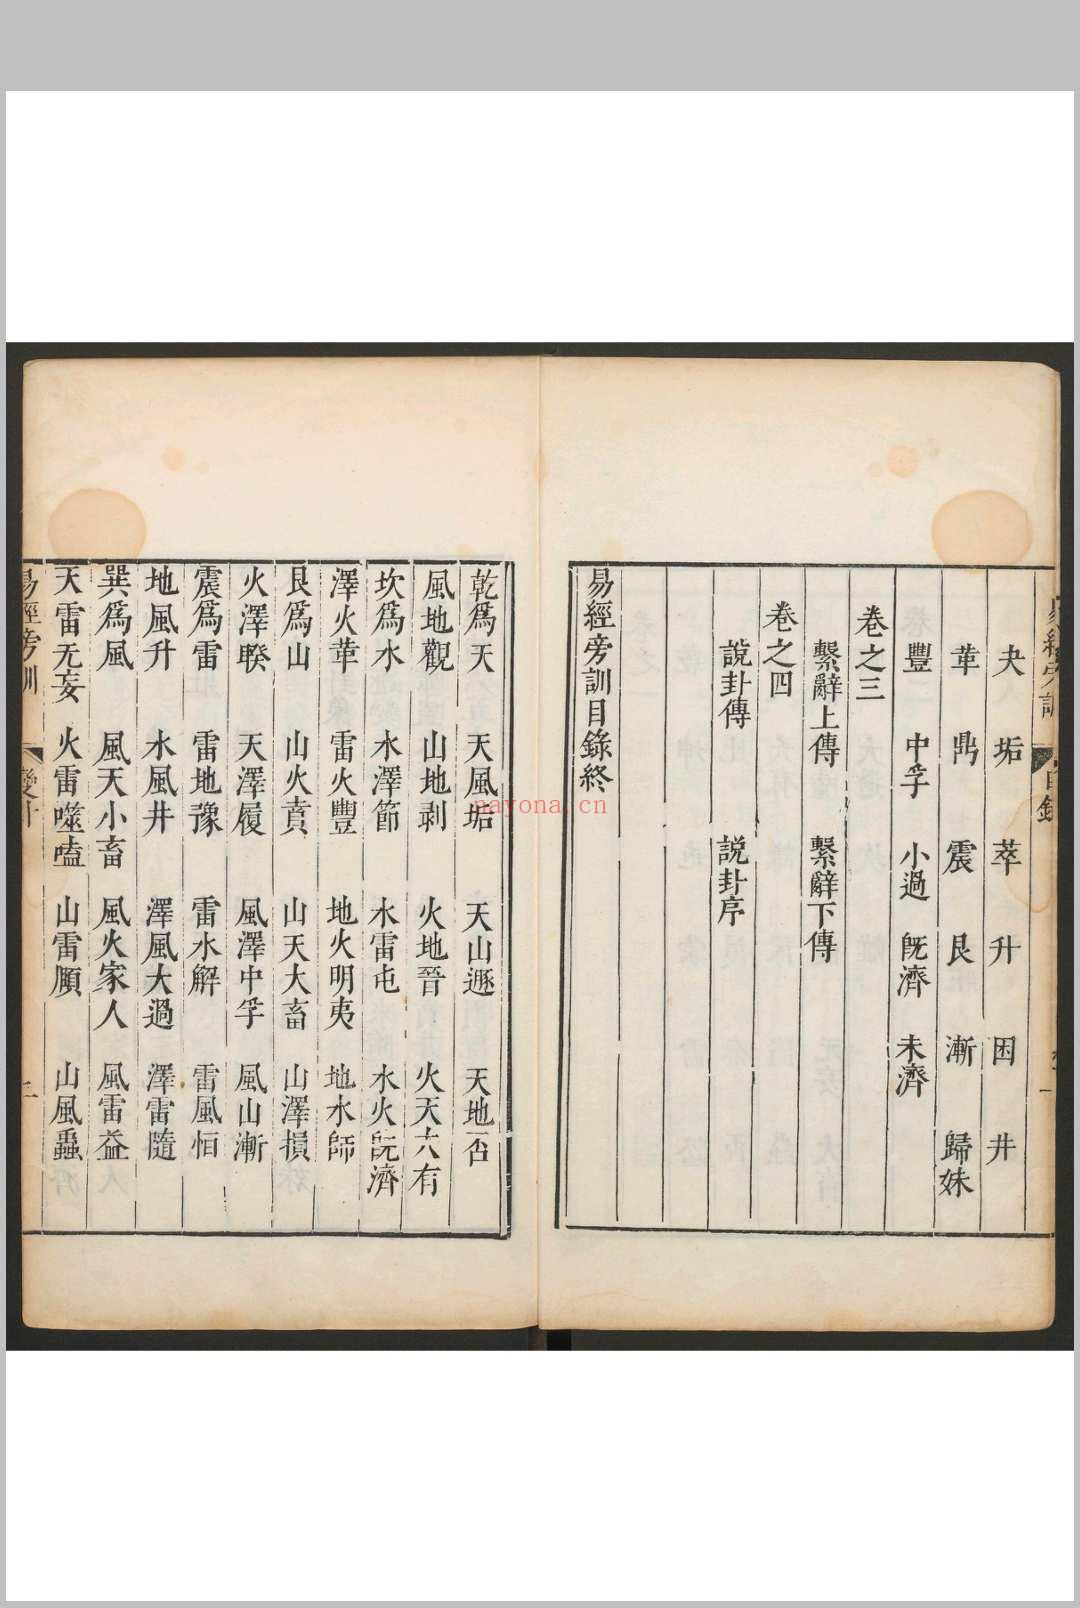 易經旁訓 目錄 一
夬 垢 萃 升 困 井
革 鼎 震 艮 漸 歸妹
豐 中孚 小過 旣濟 未濟
卷之三
繫辭上傳 繫辭下傳
卷之四
說卦傳 說卦序
易經旁訓目錄終
乾爲天 天風垢 天山遯 天地否
風地觀 山地剥 火地晉 火天大有
坎爲水 水澤節 水雷屯 水火旣濟
澤火革 雷火豐 地火明夷 地水師
艮爲山 山火賁 山天大畜 山澤損
火澤睽 天澤履 風澤中孚 風山漸
震爲雷 雷地豫 雷水解 雷風恒
地風升 水風井 澤風大過 澤雷隨
巽爲風 風天小畜 風火家人 風雷益
天雷无妄 火雷噬嗑 山雷頤 山風蠱
易經旁訓 變卦
nayona.cn